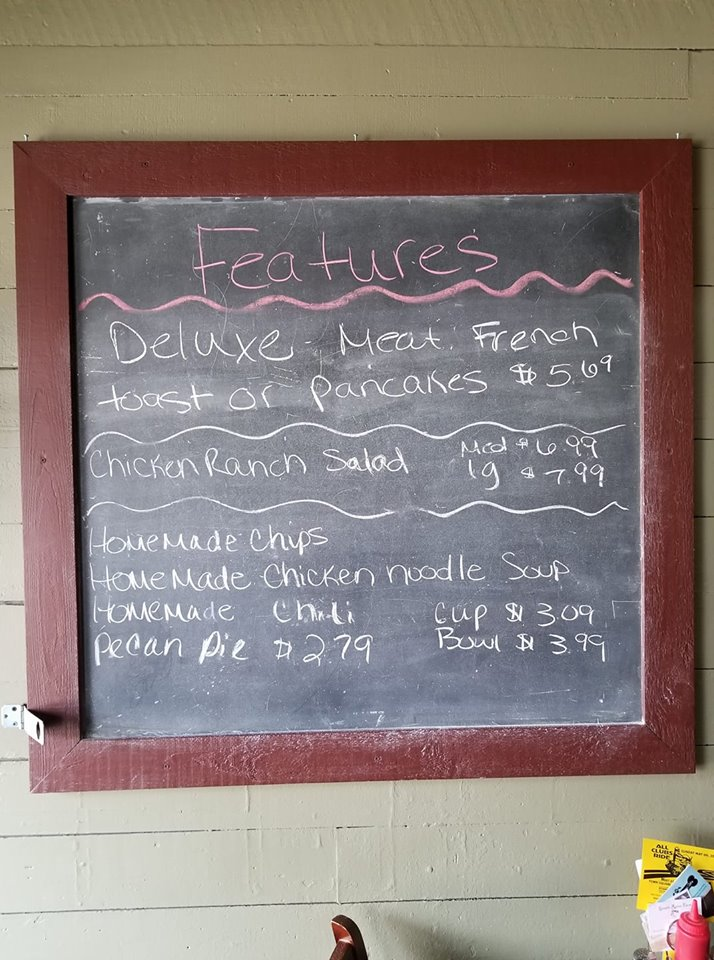 Features
Deluxe Meat French
toast or pancakes $5.69
Chicken Ranch Salad Med $6.99
lg $7.99
Homemade Chips
Homemade Chicken noodle Soup
Homemade Chili Cup $3.09
Pecan Pie $2.79 Bowl $3.99
ALL
CLUBS
RIDE